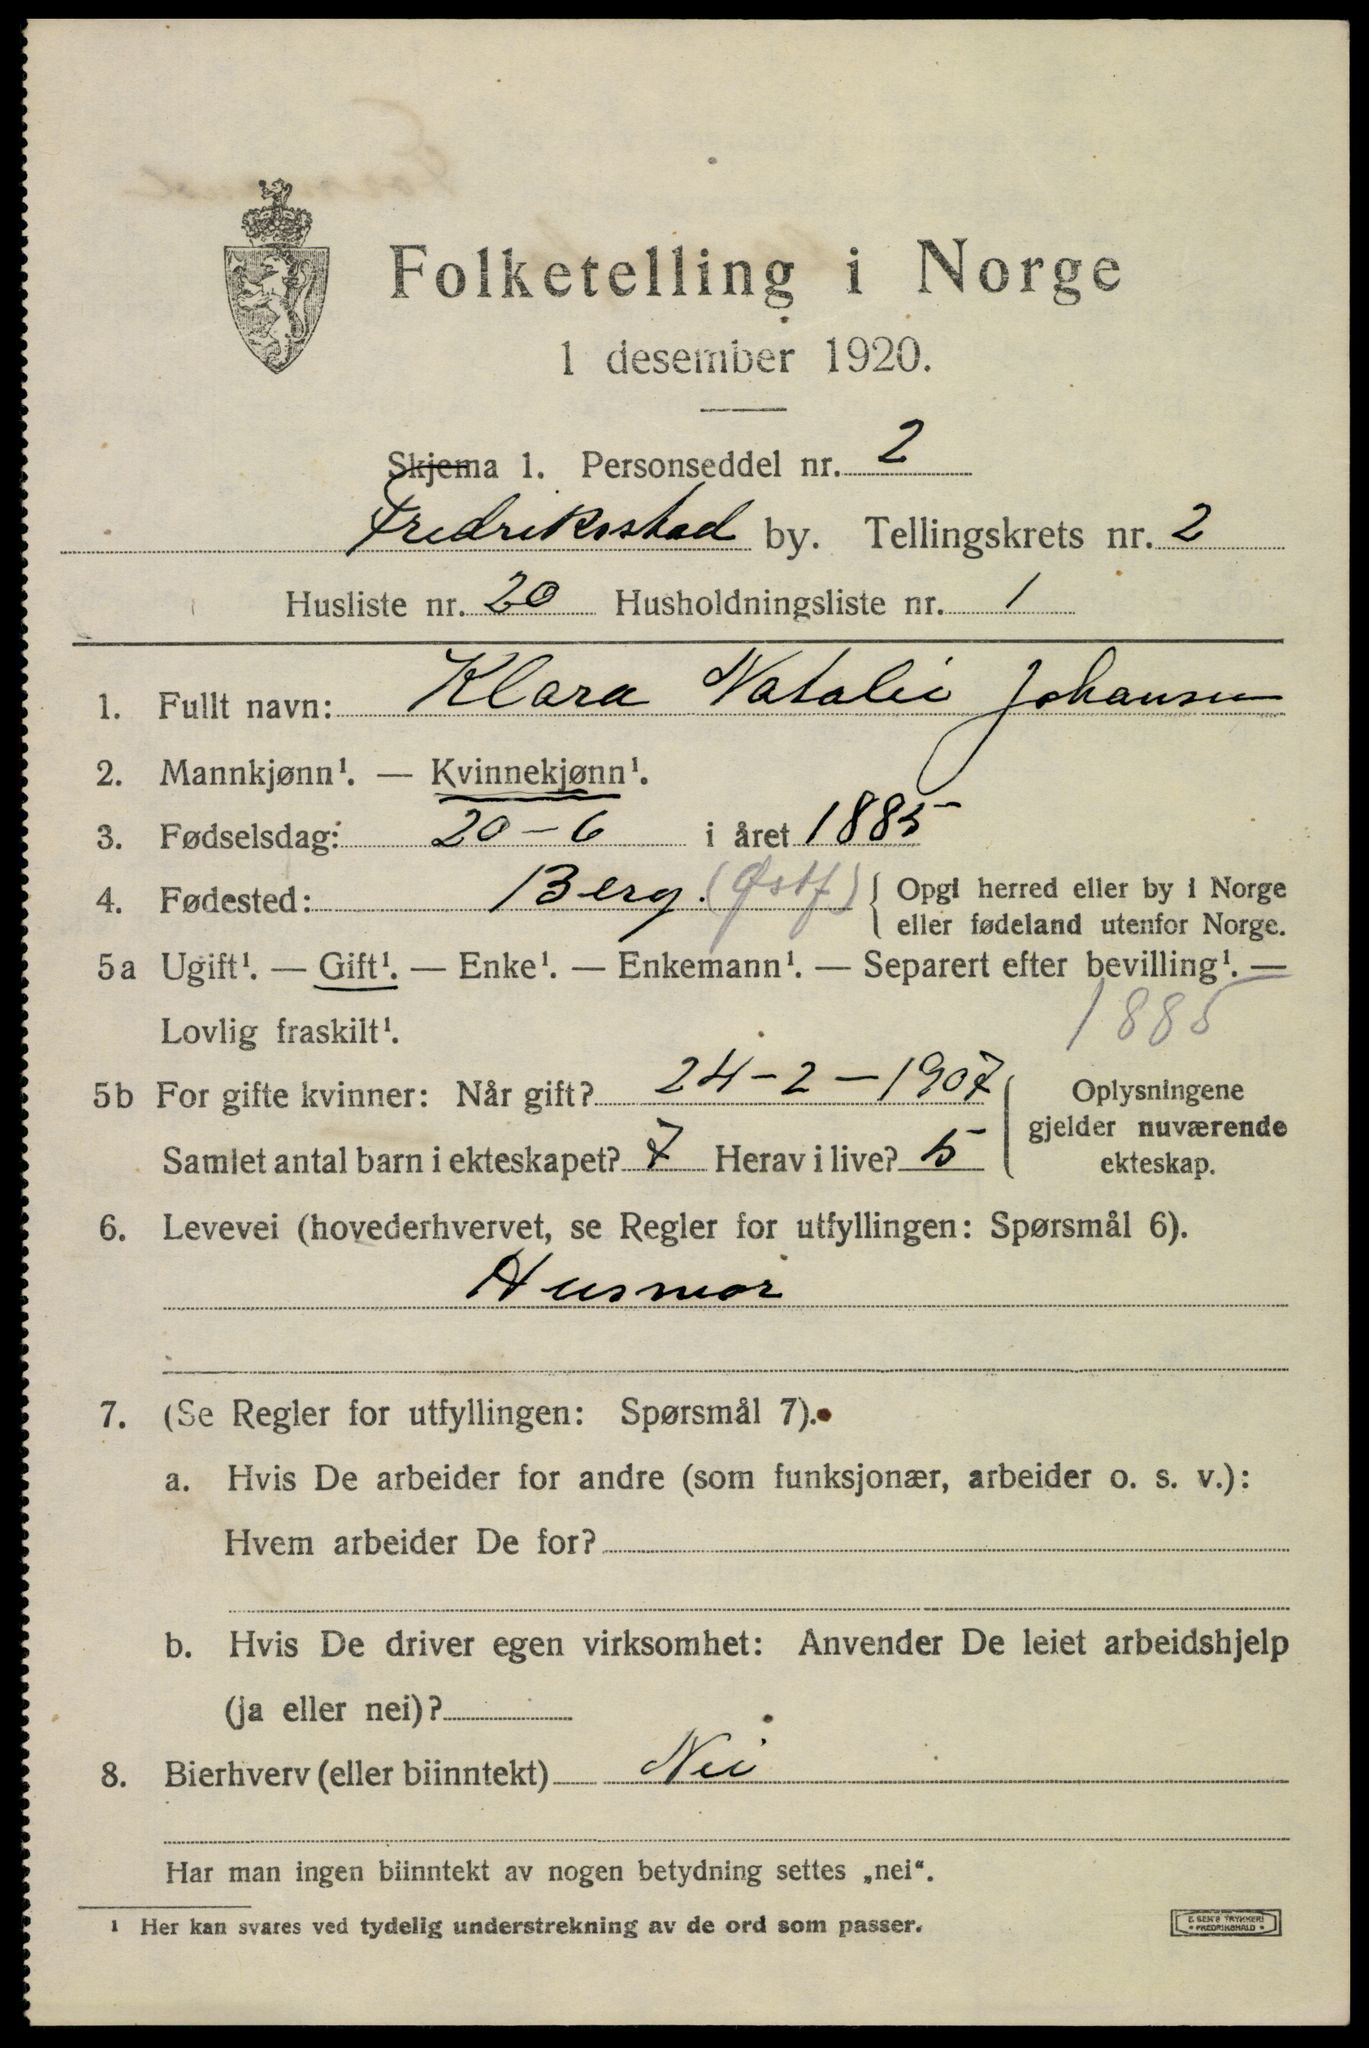 Folketelling i Norge
1 desember 1920.
Skjema 1. Personseddel nr. 2
Fredriksstad by. Tellingskrets nr. 2
Husliste nr. 20 Husholdningsliste nr. 1
1. Fullt navn: Klara Natalie Johansen
2. Mannkjønn¹. — Kvinnekjønn¹.
3. Fødselsdag: 20-6 i året 1885
4. Fødested: Berg. (Østf) { Opgi herred eller by i Norge
eller fødeland utenfor Norge.
5a Ugift¹. — Gift¹. — Enke¹. — Enkemann¹. — Separert efter bevilling¹. —
Lovlig fraskilt¹. 1885
5b For gifte kvinner: Når gift? 24-2-1907 Oplysningene
gjelder nuværende
Samlet antal barn i ekteskapet? 7 Herav i live? 5 ekteskap.
6. Levevei (hovederhvervet, se Regler for utfyllingen: Spørsmål 6).
Husmor
7. (Se Regler for utfyllingen: Spørsmål 7).
a. Hvis De arbeider for andre (som funksjonær, arbeider o. s. v.):
Hvem arbeider De for?
b. Hvis De driver egen virksomhet: Anvender De leiet arbeidshjelp
(ja eller nei)?
8. Bierhverv (eller biinntekt) Nei
Har man ingen biinntekt av nogen betydning settes „nei“.
¹ Her kan svares ved tydelig understrekning av de ord som passer.
E SEM'S TRYKKERI
• FREDRIKSHALD •